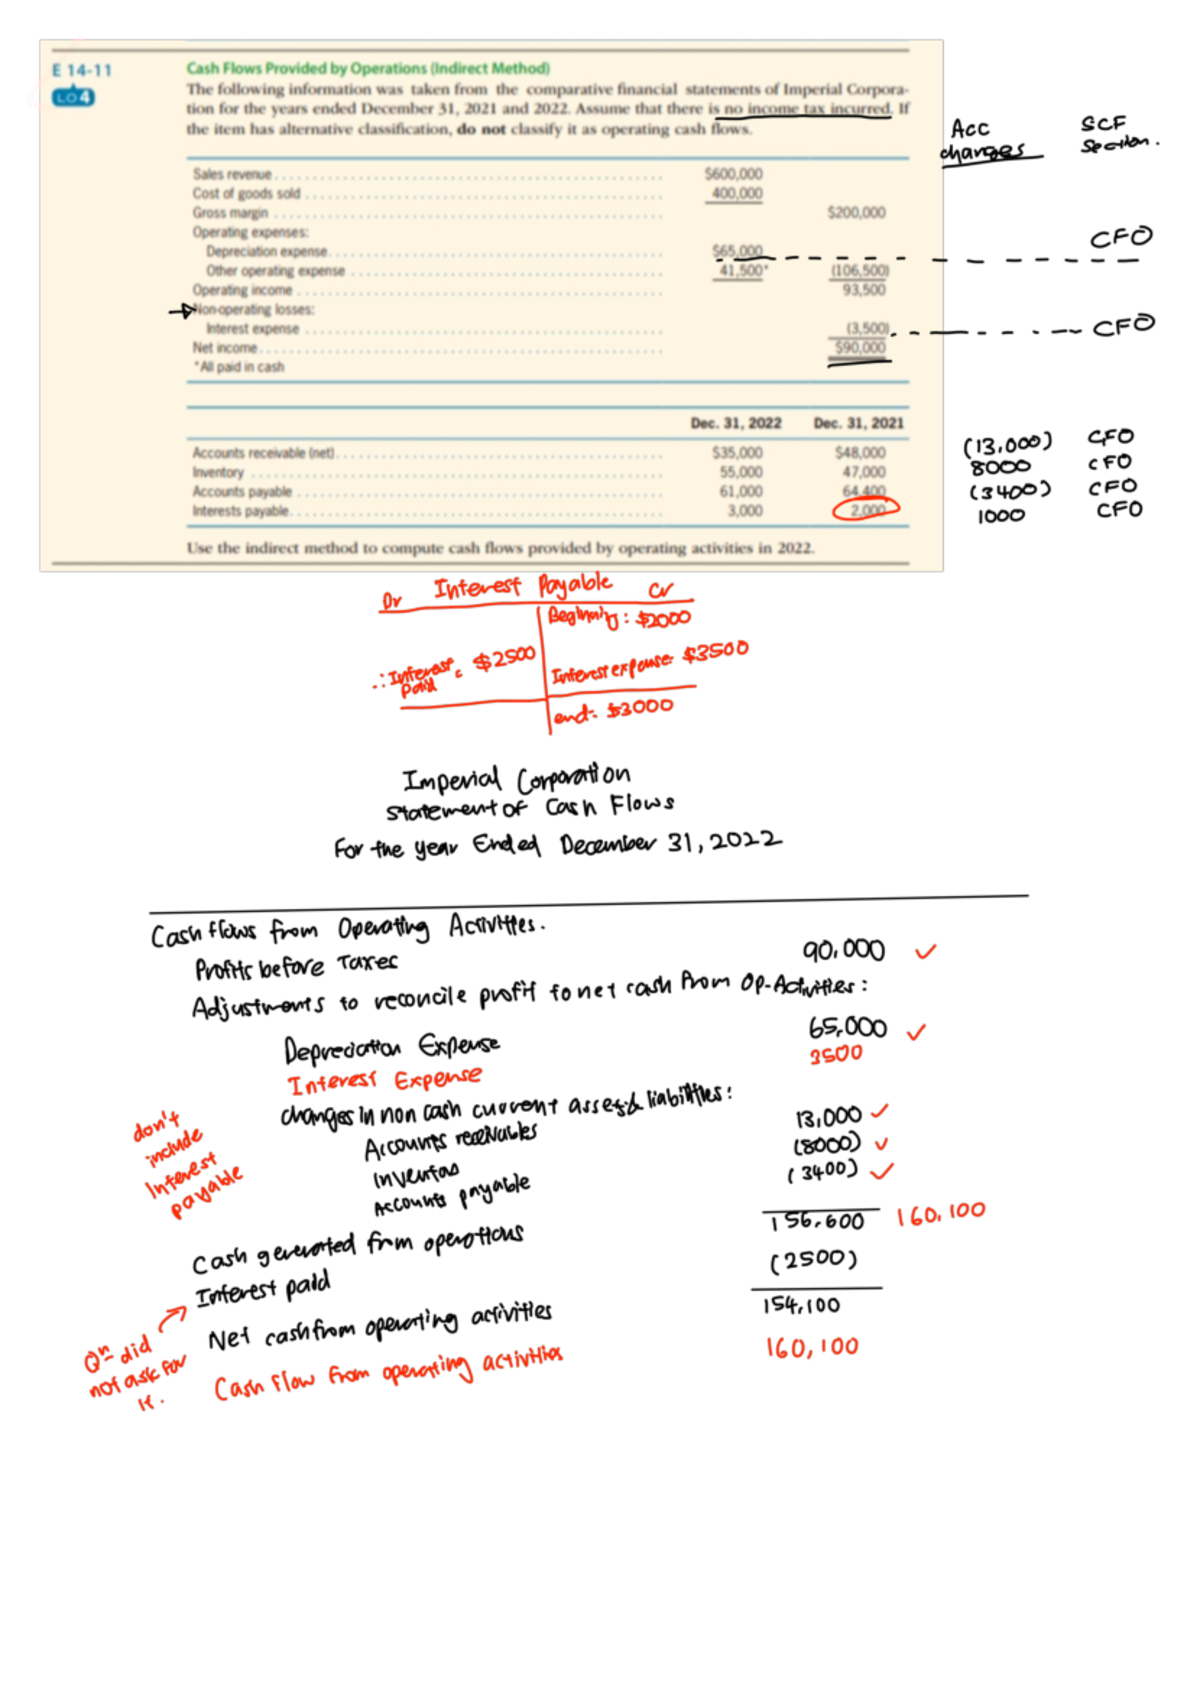 E 14-11
LO 4
Cash Flows Provided by Operations (Indirect Method)
The following information was taken from the comparative financial statements of Imperial Corpora-
tion for the years ended December 31, 2021 and 2022. Assume that there is no income tax incurred. If
the item has alternative classification, do not classify it as operating cash flows.
Acc changes
SCF Section.
Sales revenue $600,000
Cost of goods sold 400,000
Gross margin $200,000
Operating expenses:
Depreciation expense $65,000 CFO
Other operating expense 41,500* (106,500)
Operating income 93,500
Non-operating losses:
Interest expense (3,500) CFO
Net income $90,000
*All paid in cash
Dec. 31, 2022 Dec. 31, 2021
Accounts receivable (net) $35,000 $48,000 (13,000) CFO
Inventory 55,000 47,000 8000 CFO
Accounts payable 61,000 64,400 (3400) CFO
Interests payable 3,000 2,000 1000 CFO
Use the indirect method to compute cash flows provided by operating activities in 2022.
Dr Interest Payable Cr
Beginning: $2000
∴ Interest paid: $2500
Interest expense: $3500
end: $3000
Imperial Corporation
Statement of Cash Flows
For the year Ended December 31, 2022
Cash flows from Operating Activities.
Profits before Taxes 90,000 ✓
Adjustments to reconcile profit to net cash from Op-Activities:
Depreciation Expense 65,000 ✓
Interest Expense 3500
changes in non cash current assets & liabilities:
Accounts receivables 13,000 ✓
Inventory (8000) ✓
Accounts payable (3400) ✓
don't include Interest payable
156,600 160,100
Cash generated from operations
Interest paid (2500)
154,100
Net cash from operating activities
Qn- did not ask for it.
Cash flow from operating activities 160,100